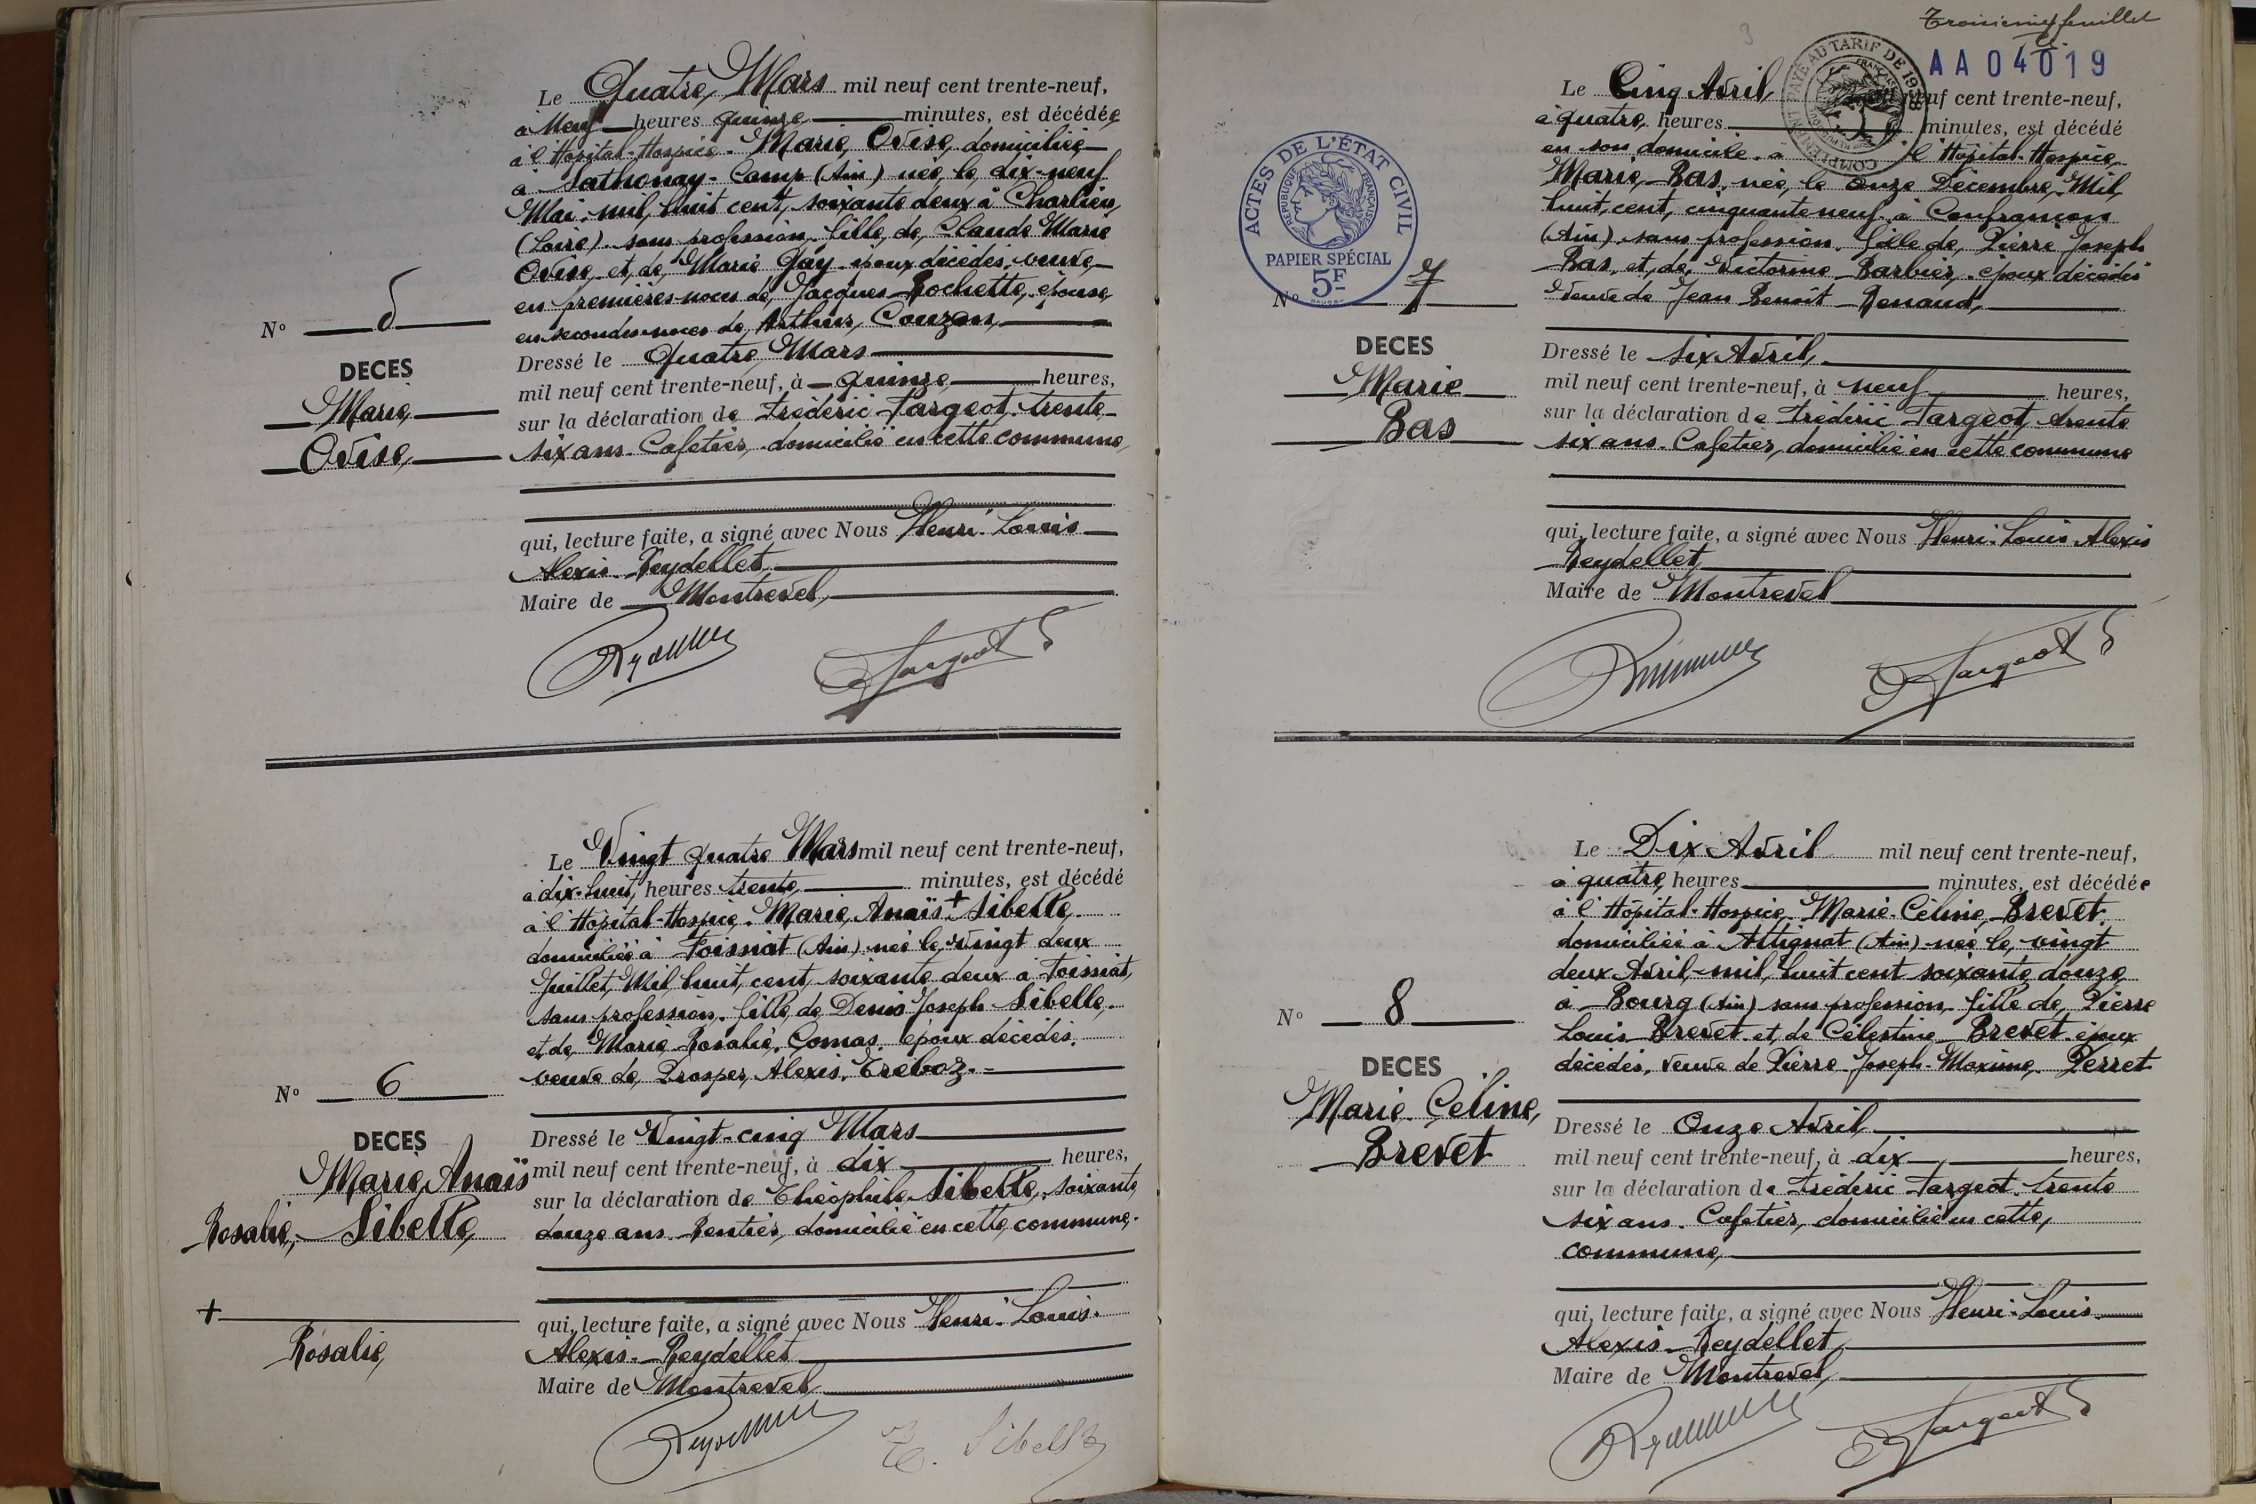 N° 5
DECES
Marie
Ovise
Le Quatre Mars mil neuf cent trente-neuf,
à Neuf heures quinze minutes, est décédée
à l'Hôpital-Hospice. Marie Ovise, domiciliée
à Sathonay-Camp (Ain) née le dix-neuf
Mai mil huit cent soixante deux à Charlieu
(Loire) sans profession, fille de Claude Marie
Ovise et de Marie Gay époux décédés, veuve
en premières noces de Jacques Rochette, épouse
en secondes noces de Arthur Couzon
Dressé le Quatre Mars
mil neuf cent trente-neuf, à quinze heures,
sur la déclaration de Frédéric Fargeot, trente
six ans. Cafetier, domicilié en cette commune,
qui, lecture faite, a signé avec Nous Henri-Louis
Alexis Reydellet
Maire de Montrevel,
Fargeot
N° 6
DECES
Marie Anaïs
Rosalie, Sibelle
+
Rosalie
Le Vingt quatre Mars mil neuf cent trente-neuf,
à dix-huit heures trente minutes, est décédé
à l'Hôpital-Hospice. Marie Anaïs + Sibelle
domiciliée à Foissiat (Ain) née le vingt deux
Juillet Mil huit cent soixante deux à Foissiat,
sans profession. fille de Denis Joseph Sibelle
et de Marie Rosalie Comas, époux décédés,
veuve de Prosper Alexis Treboz.
Dressé le Vingt-cinq Mars
mil neuf cent trente-neuf, à dix heures,
sur la déclaration de Théophile Sibelle, soixante
douze ans. Rentier, domicilié en cette commune.
qui, lecture faite, a signé avec Nous Henri-Louis
Alexis Reydellet
Maire de Montrevel
Sibelle
Troisième feuillet
3
AA04019
COMPLEMENT PAYÉ AU TARIF DE
ACTES DE L'ÉTAT CIVIL
REPUBLIQUE FRANÇAISE
PAPIER SPÉCIAL
5F
N° 7
DECES
Marie
Bas
Le Cinq Avril mil neuf cent trente-neuf,
à quatre heures minutes, est décédé
en son domicile à l'Hôpital-Hospice
Marie Bas, née le onze Décembre Mil
huit cent cinquante neuf à Confrançon
(Ain) sans profession. fille de Pierre Joseph
Bas et de Victorine Barbier, époux décédés
Veuve de Jean Benoît Renaud,
Dressé le Six Avril
mil neuf cent trente-neuf, à neuf heures,
sur la déclaration de Frédéric Fargeot, trente
six ans. Cafetier, domicilié en cette commune
qui, lecture faite, a signé avec Nous Henri-Louis Alexis
Reydellet
Maire de Montrevel
Fargeot
N° 8
DECES
Marie Céline
Brevet
Le Dix Avril mil neuf cent trente-neuf,
à quatre heures minutes, est décédée
à l'Hôpital-Hospice Marie-Céline Brevet
domiciliée à Attignat (Ain) née le vingt
deux Avril mil huit cent soixante douze
à Bourg (Ain) sans profession, fille de Pierre
Louis Brevet et de Célestine Brevet époux
décédés, veuve de Pierre Joseph Maxime Perret
Dressé le Onze Avril
mil neuf cent trente-neuf, à dix heures,
sur la déclaration de Frédéric Fargeot, trente
six ans. Cafetier, domicilié en cette
commune
qui, lecture faite, a signé avec Nous Henri-Louis
Alexis Reydellet
Maire de Montrevel
Fargeot